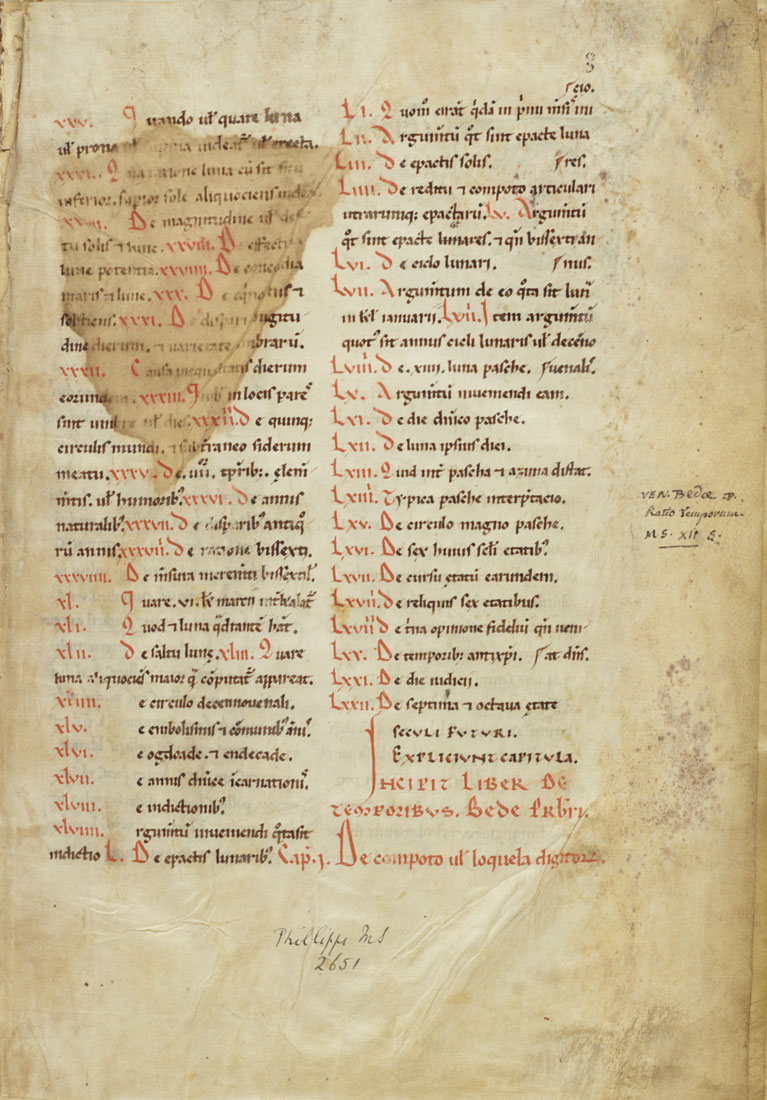 8
xxv. Quando ul' quare luna
ul' prona ul' supina uideat' ul' erecta.
xxvi. Qua ratione luna cū sit situ
inferior. supior sole aliquociens uideat'
De magnitudine ul' defec
tu solis ⁊ lune. xxviii. De effecti
lune potentia. xxviiii. De concordia
maris ⁊ lune. xxx. De eq̇noctiis ⁊
solstitiis. xxxi. De dispari longitu
dine dierum. ⁊ uarietate umbrarū.
xxxii. Causa inequalitatis dierum
eorundem. xxxiii. Quib' in locis pares
sint umbre ul' dies. xxxiiii. De quinq;
circulis mundi. ⁊ subterraneo siderum
meatu. xxxv. De. iiii. tp̄rib; elem̄
mitis. ul' humorib'. xxxvi. De annis
naturalib'. xxxvii. De disparib; antiq̇
rū annis. xxxviii. De ratione bissexti.
xxxviiii. De m̄sura mrem̄ti bissextil'.
xl. Quare. vi. kl' marcii int̄kalat'
xli. Quod ⁊ luna q̇drantē hāt.
xlii. De saltu lunę. xliii. Quare
luna aliquociēs maior quā cōputat' appareat.
xliiii. e circulo decennouenali.
xlv. e embolismis ⁊ cōmunib' annis.
xlvi. e ogdoade. ⁊ endecade.
xlvii. e annis dn̄ice īcarnationis.
xlviii. e indictionib'.
xlviiii. rgum̄tū inueniendi q̇tasit
indictio L. De epactis lunarib'.
ęcio.
LI. Quom̄ errāt q̇dā in p̄mi m̄sis ini
LII. Argum̄tū q̇t sint epacte luna
LIII. De epactis solis. res.
LIIII. De reditu ⁊ compoto articulari
utrarumq; epactarū. Lv. Argum̄tū
q̇t sint epacte lunares. ⁊ qn̄ bissexti an
LVI. De ciclo lunari. nus.
LVII. Argum̄tum de eo q̇ta sit luna
in kl' ianuarii. Lviii. Item argum̄tū
quot' sit annus cicli lunaris ul' decēno
LVIIII. De. xiiii. luna pasche. uenalis.
LX. Argum̄tū inueniendi eam.
LXI. De die dn̄ico pasche.
LXII. De luna ipsius diei.
LXIII. Quid int̄ pascha ⁊ azima distat.
LXIIII. Typica pasche interp̄tacio.
LXV. De circulo magno pasche.
LXVI. De sex huius sc̄li etatib'.
LXVII. De cursu etatū earundem.
LXVIII. De reliquis sex etatibus.
LXVIIII De t̄na opinione fideliū qn̄ ueni
LXX. De temporib; antixp̄i. at dn̄s.
LXXI. De die iudicii.
LXXII. De septima ⁊ octaua etate
SECULI FUTURI.
EXPLICIUNT CAPITULA.
INCIPIT LIBER DE
TEMPORIBUS. BEDE PRBRI.
Cap. I. De compoto ul' loquela digitorū.
VEN. Bedæ
Ratio Temporum.
MS. XII S.
Phillipps MS
2651